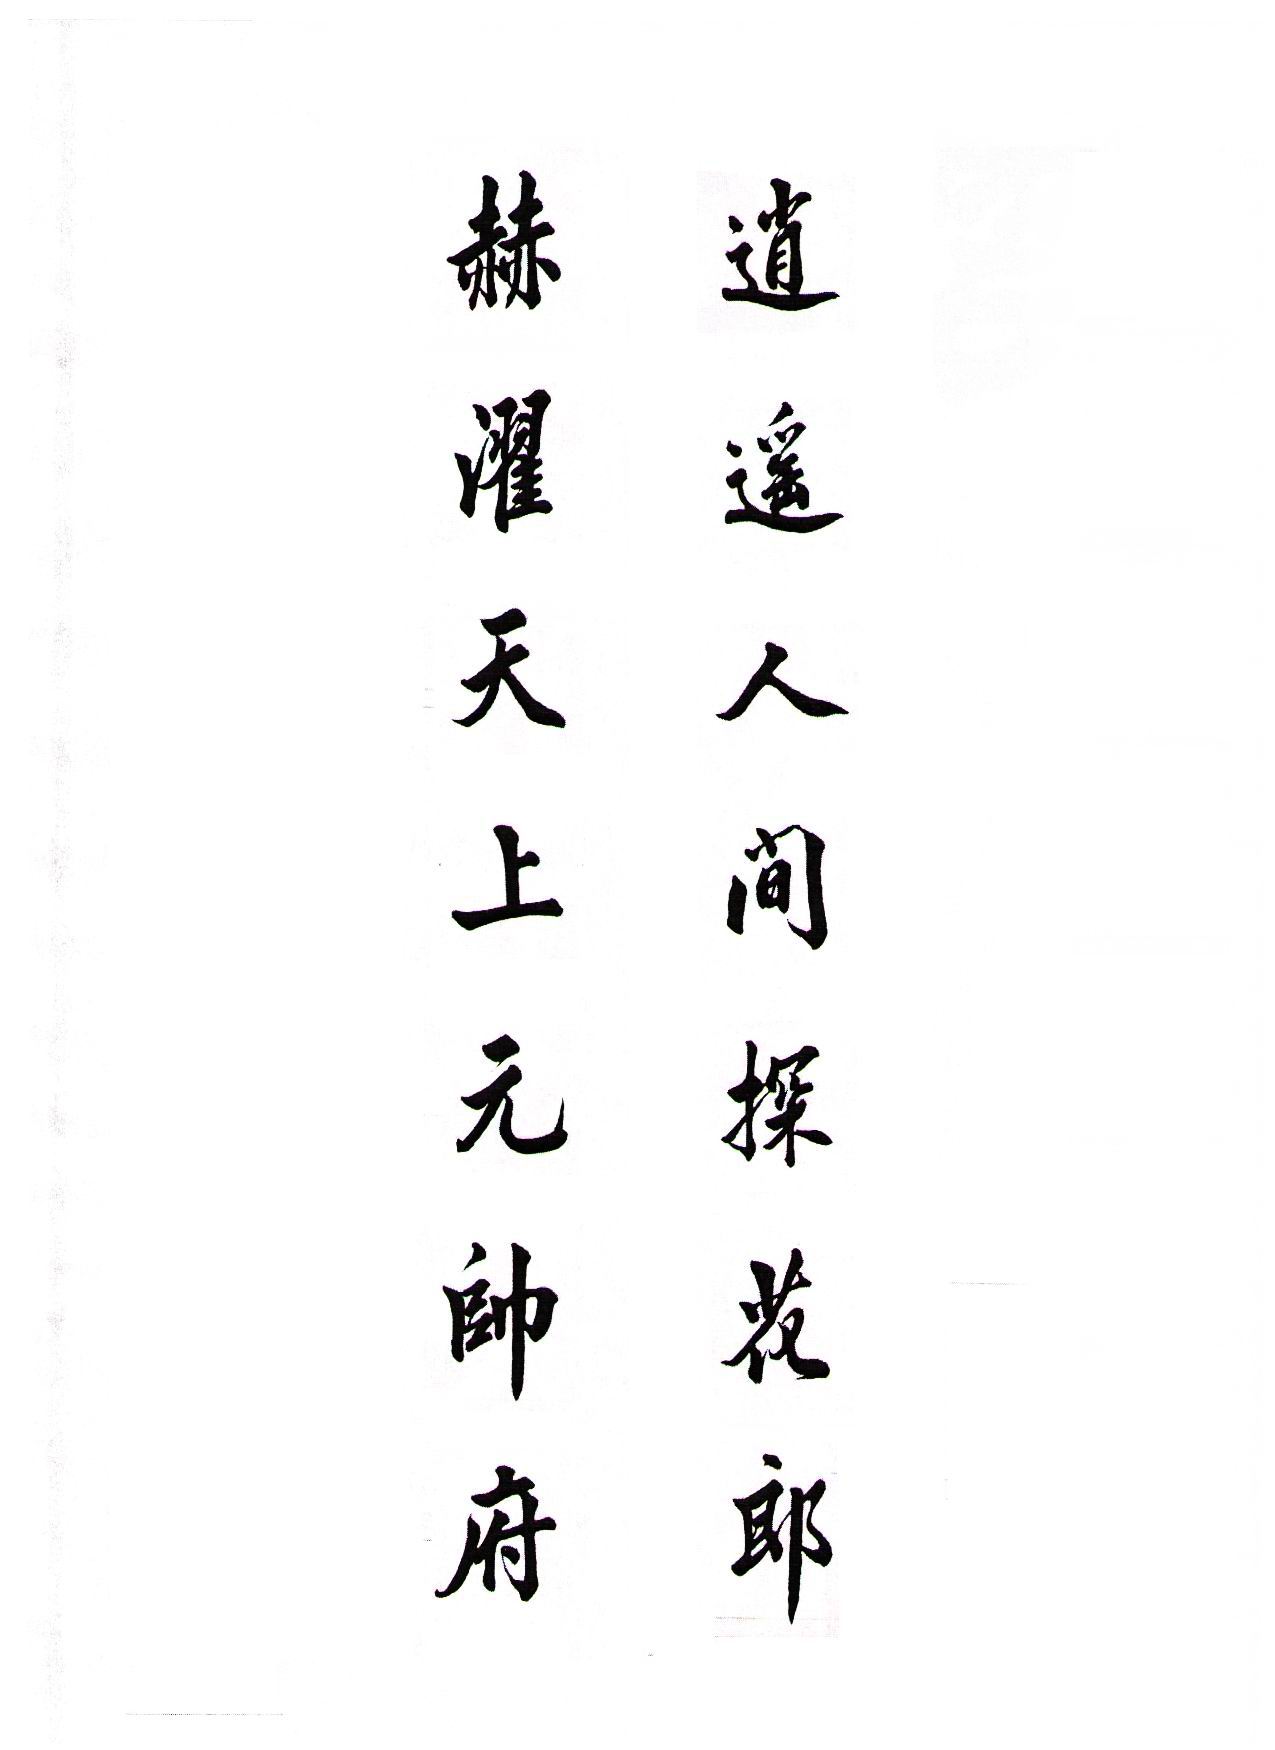 逍遥人間探花郎
赫濯天上元帥府